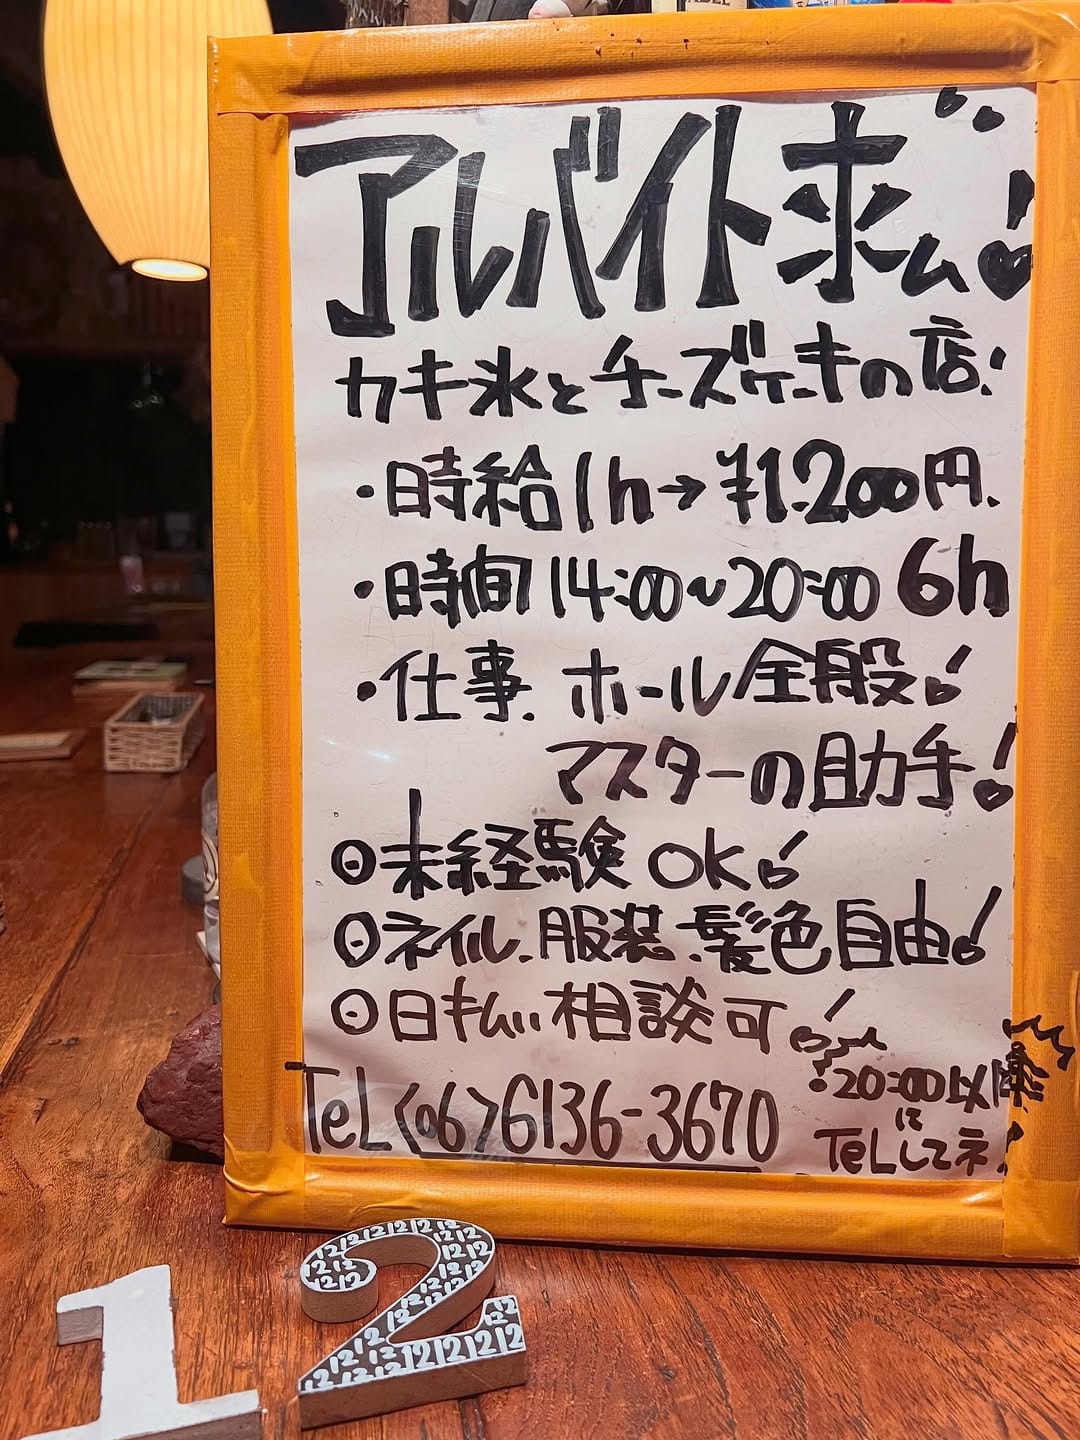 アルバイト求ム!
カキ氷とチーズケーキの店!
・時給1h→¥1.200円.
・時間14:00~20:00 6h
・仕事.ホール全般!
マスターの助手!
⊙未経験OK!
⊙ネイル.服装.髪色自由!
⊙日払い相談可!
TeL(06)6136-3670
20:00以降
に
TeLしてネ!
12